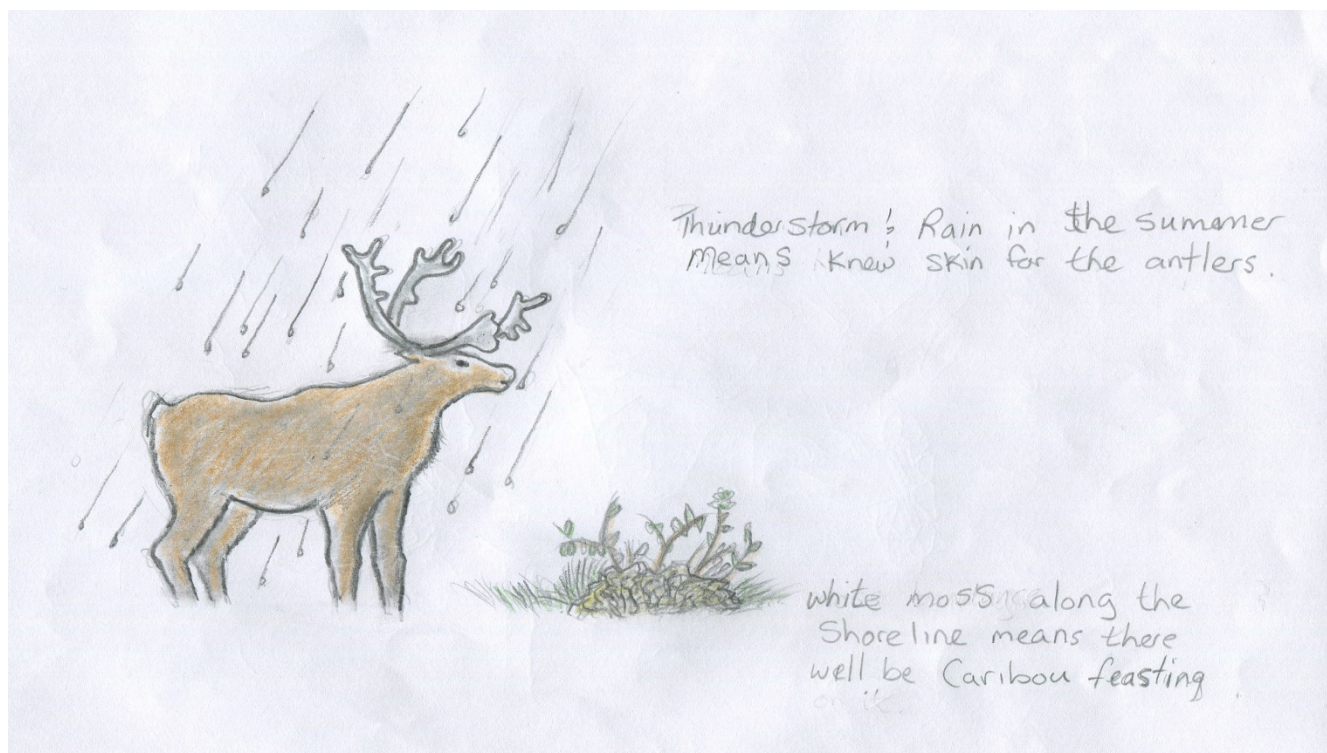 Thunderstorm & Rain in the sumemer
means knew skin for the antlers.
white moss along the
Shoreline means there
well be Caribou feasting
on it.